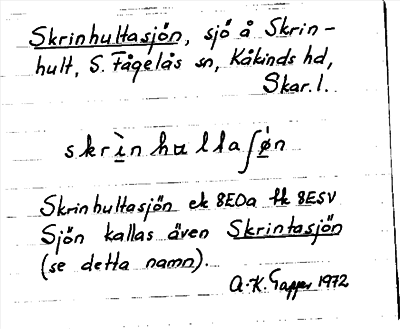 Skrinhultasjön, sjö å Skrin-
hult, S. Fågelås sn, Kåkinds hd,
Skar. l.
skrìnhullaʃø̀n
Skrinhultasjön ek 8E0a tk 8E5V
Sjön kallas även Skrintasjön
(se detta namn).
A.-K. 1972